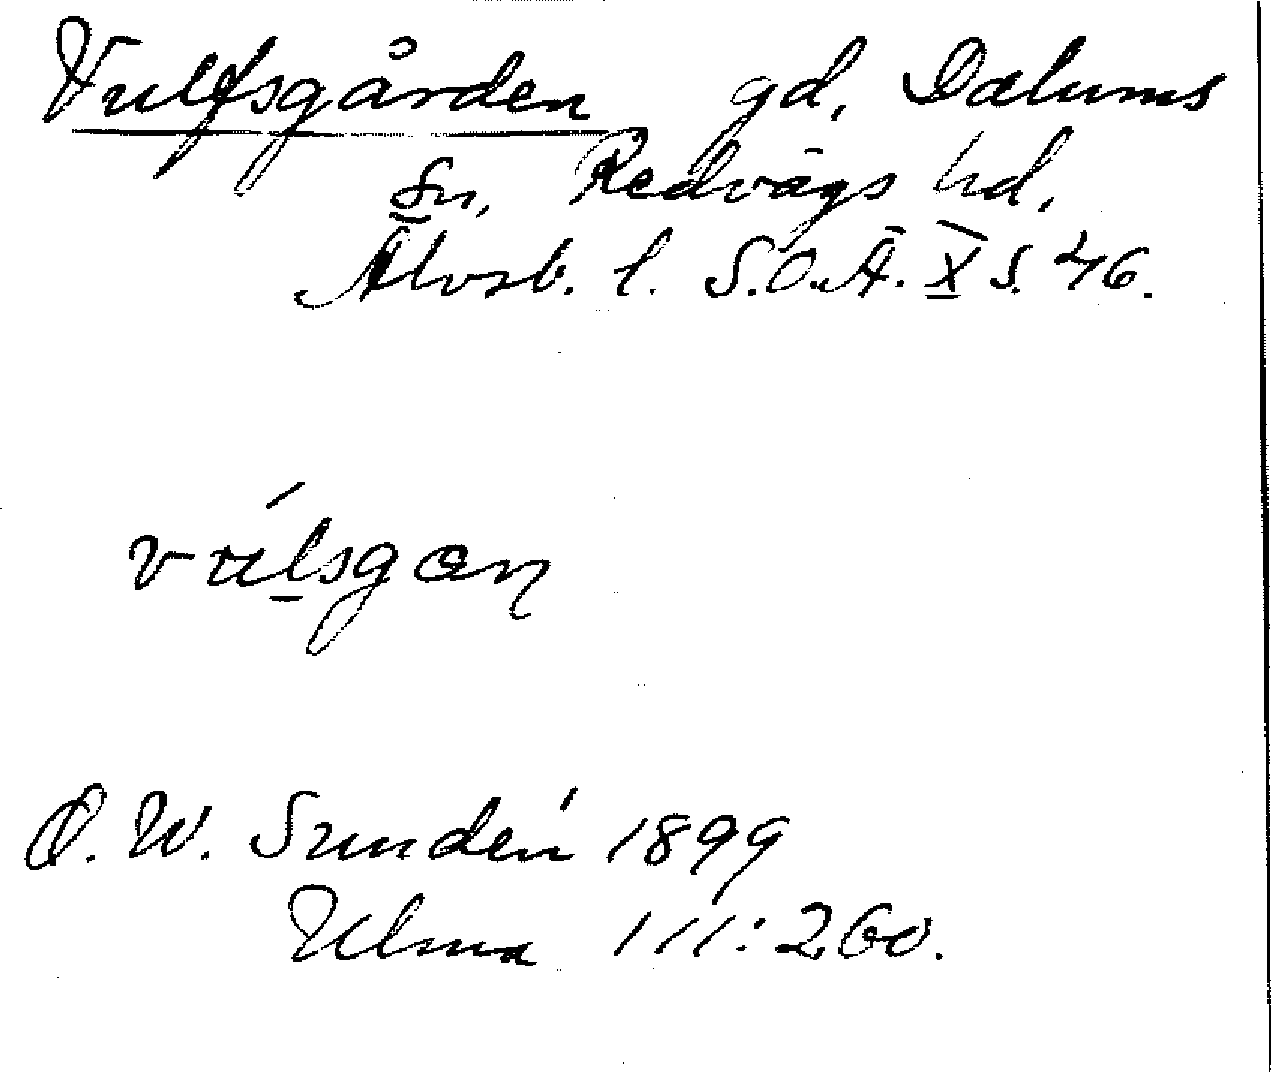 Vulfsgården gd, Dalums
sn, Redvägs hd,
Älvsb. l. S.O.Ä. X S. 46.
vúlsgaɳ
D. W. Sundén 1899
Ulma 111:260.